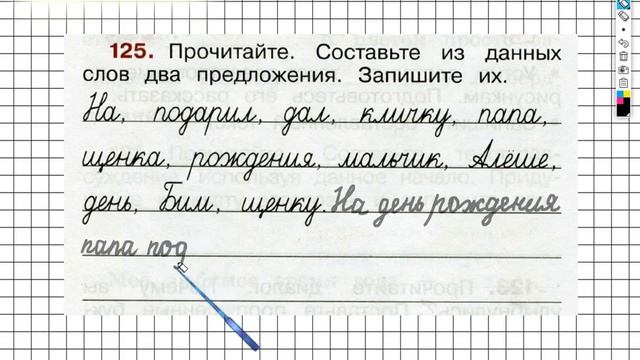 125. Прочитайте. Составьте из данных
слов два предложения. Запишите их.
На, подарил, дал, кличку, папа,
щенка, рождения, мальчик, Алёше,
день, Бим, щенку. На день рождения
папа под